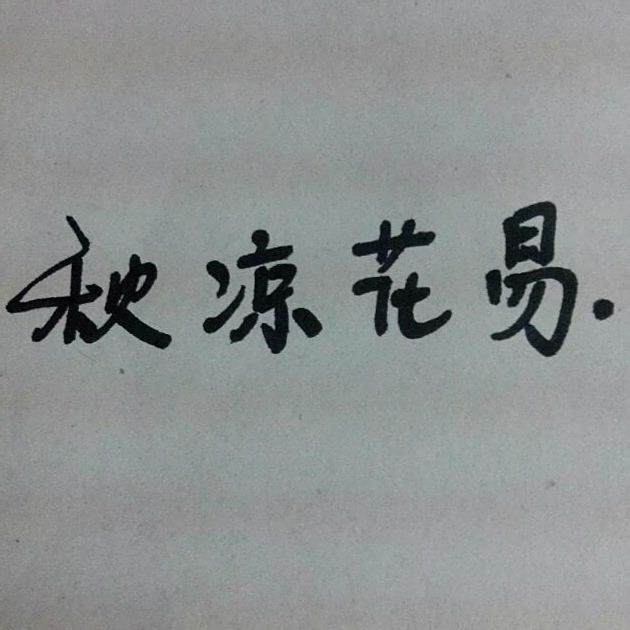 秋凉花易.